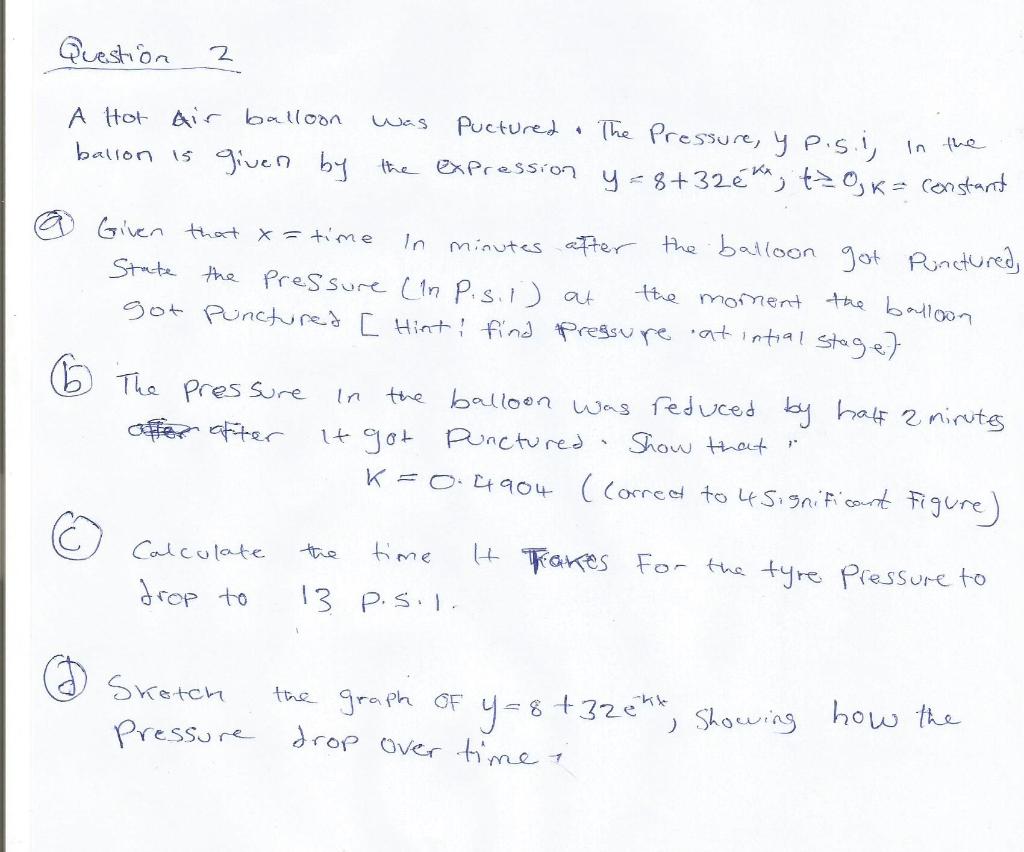 Question 2
A Hot Air balloon was Puctured. The Pressure, y P.s.i, In the
ballon is given by the expression y = 8+32e^-kx, t≥0, K= constant
(a) Given that x = time In minutes after the balloon got Punctured,
State the Pressure (In P.s.i) at the moment the balloon
got Punctured [Hint: find Pressure at intial stage]
(b) The pressure In the balloon was reduced by half 2 minutes
after It got Punctured. Show that "
K = 0.4904 (Correct to 4 Significant Figure)
(c) Calculate the time It Takes For the tyre Pressure to
drop to 13 P.S.I.
(d) Sketch the graph OF y=8+32e^-kx, Showing how the
Pressure drop over time.